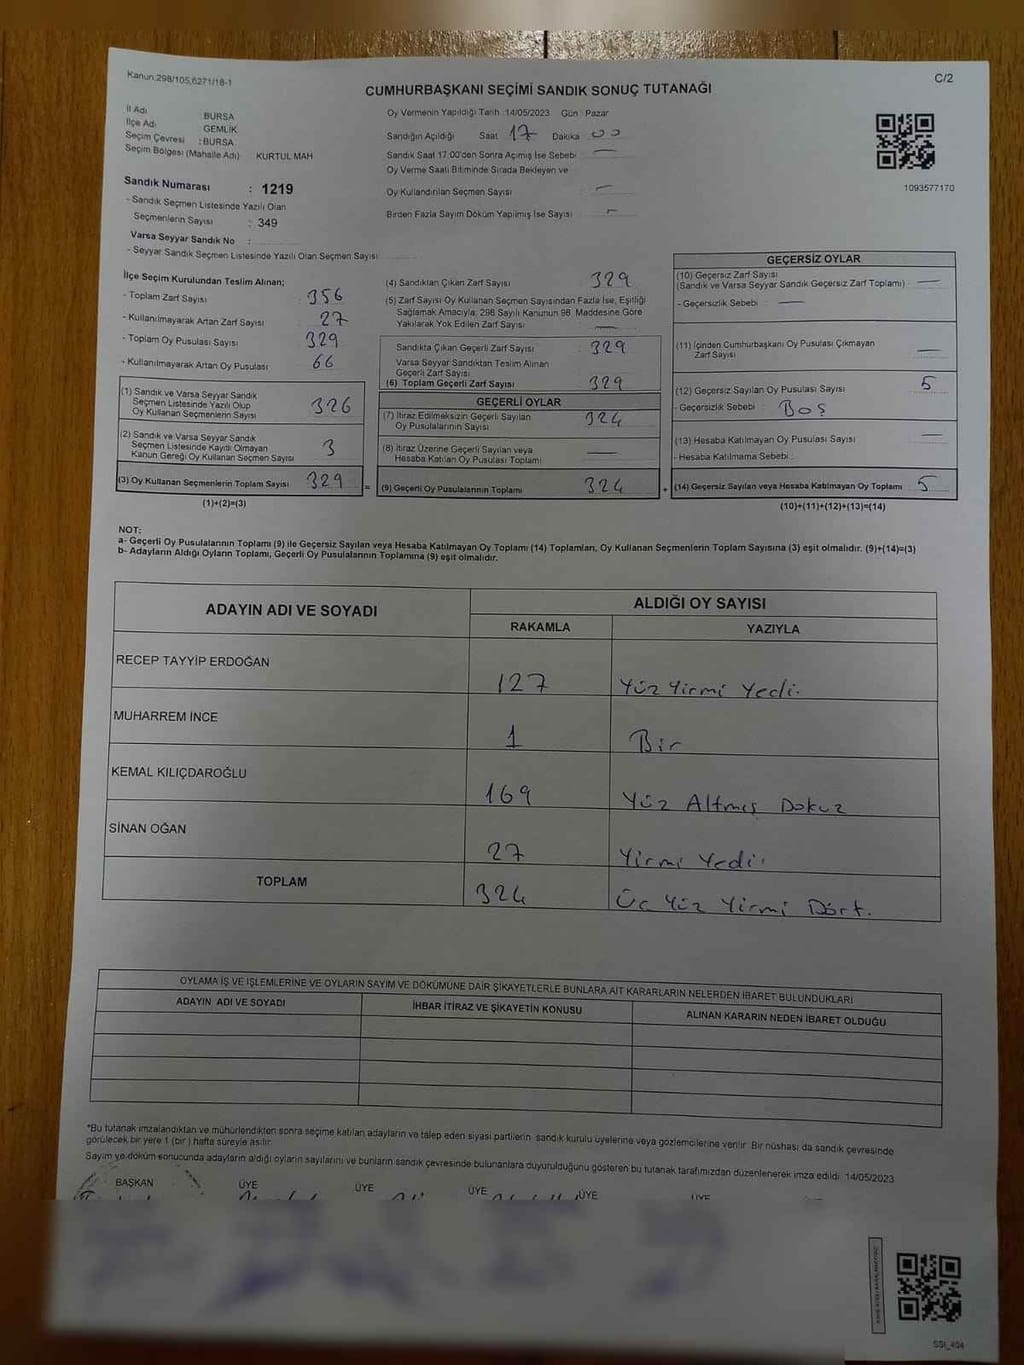 Kanun:298/105,6271/18-1
C/2
CUMHURBAŞKANI SEÇİMİ SANDIK SONUÇ TUTANAĞI
İl Adı BURSA
İlçe Adı: GEMLİK
Seçim Çevresi :BURSA
Seçim Bölgesi (Mahalle Adı) KURTUL MAH
Oy Vermenin Yapıldığı Tarih :14/05/2023 Gün : Pazar
Sandığın Açıldığı Saat 17 Dakika 00
Sandık Saat 17:00'den Sonra Açılmış İse Sebebi —
Oy Verme Saati Bitiminde Sırada Bekleyen ve
Oy Kullandırılan Seçmen Sayısı —
Birden Fazla Sayım Döküm Yapılmış İse Sayısı —
1093577170
Sandık Numarası : 1219
- Sandık Seçmen Listesinde Yazılı Olan
Seçmenlerin Sayısı : 349
Varsa Seyyar Sandık No :
- Seyyar Sandık Seçmen Listesinde Yazılı Olan Seçmen Sayısı
İlçe Seçim Kurulundan Teslim Alınan;
- Toplam Zarf Sayısı 356
- Kullanılmayarak Artan Zarf Sayısı 27
- Toplam Oy Pusulası Sayısı 329
- Kullanılmayarak Artan Oy Pusulası 66
(1) Sandık ve Varsa Seyyar Sandık
Seçmen Listesinde Yazılı Olup
Oy Kullanan Seçmenlerin Sayısı 326
(2) Sandık ve Varsa Seyyar Sandık
Seçmen Listesinde Kaydı Olmayan
Kanun Gereği Oy Kullanan Seçmen Sayısı 3
(3) Oy Kullanan Seçmenlerin Toplam Sayısı 329
(1)+(2)=(3)
(4) Sandıktan Çıkan Zarf Sayısı 329
(5) Zarf Sayısı Oy Kullanan Seçmen Sayısından Fazla İse, Eşitliği
Sağlamak Amacıyla, 298 Sayılı Kanunun 98. Maddesine Göre
Yakılarak Yok Edilen Zarf Sayısı —
Sandıkta Çıkan Geçerli Zarf Sayısı 329
Varsa Seyyar Sandıktan Teslim Alınan
Geçerli Zarf Sayısı
(6) Toplam Geçerli Zarf Sayısı 329
GEÇERLİ OYLAR
(7) İtiraz Edilmeksizin Geçerli Sayılan
Oy Pusulalarının Sayısı 324
(8) İtiraz Üzerine Geçerli Sayılan veya
Hesaba Katılan Oy Pusulası Toplamı —
= (9) Geçerli Oy Pusulalarının Toplamı 324
GEÇERSİZ OYLAR
(10) Geçersiz Zarf Sayısı
(Sandık ve Varsa Seyyar Sandık Geçersiz Zarf Toplamı) —
- Geçersizlik Sebebi : —
(11) İçinden Cumhurbaşkanı Oy Pusulası Çıkmayan
Zarf Sayısı —
(12) Geçersiz Sayılan Oy Pusulası Sayısı 5
- Geçersizlik Sebebi : BOŞ
(13) Hesaba Katılmayan Oy Pusulası Sayısı —
- Hesaba Katılmama Sebebi :
+ (14) Geçersiz Sayılan veya Hesaba Katılmayan Oy Toplamı 5
(10)+(11)+(12)+(13)=(14)
NOT:
a- Geçerli Oy Pusulalarının Toplamı (9) ile Geçersiz Sayılan veya Hesaba Katılmayan Oy Toplamı (14) Toplamları, Oy Kullanan Seçmenlerin Toplam Sayısına (3) eşit olmalıdır. (9)+(14)=(3)
b- Adayların Aldığı Oyların Toplamı, Geçerli Oy Pusulalarının Toplamına (9) eşit olmalıdır.
ADAYIN ADI VE SOYADI ALDIĞI OY SAYISI
RAKAMLA YAZIYLA
RECEP TAYYİP ERDOĞAN 127 Yüz Yirmi Yedi.
MUHARREM İNCE 1 Bir
KEMAL KILIÇDAROĞLU 169 Yüz Altmış Dokuz
SİNAN OĞAN 27 Yirmi Yedi.
TOPLAM 324 Üç Yüz Yirmi Dört.
OYLAMA İŞ VE İŞLEMLERİNE VE OYLARIN SAYIM VE DÖKÜMÜNE DAİR ŞİKAYETLERLE BUNLARA AİT KARARLARIN NELERDEN İBARET BULUNDUKLARI
ADAYIN ADI VE SOYADI İHBAR İTİRAZ VE ŞİKAYETİN KONUSU ALINAN KARARIN NEDEN İBARET OLDUĞU
*Bu tutanak imzalandıktan ve mühürlendikten sonra seçime katılan adayların ve talep eden siyasi partilerin sandık kurulu üyelerine veya gözlemcilerine verilir. Bir nüshası da sandık çevresinde
görülecek bir yere 1 (bir) hafta süreyle asılır.
Sayım ve döküm sonucunda adayların aldığı oyların sayılarını ve bunların sandık çevresinde bulunanlara duyurulduğunu gösteren bu tutanak tarafımızdan düzenlenerek imza edildi. 14/05/2023
BAŞKAN ÜYE ÜYE ÜYE ÜYE ÜYE